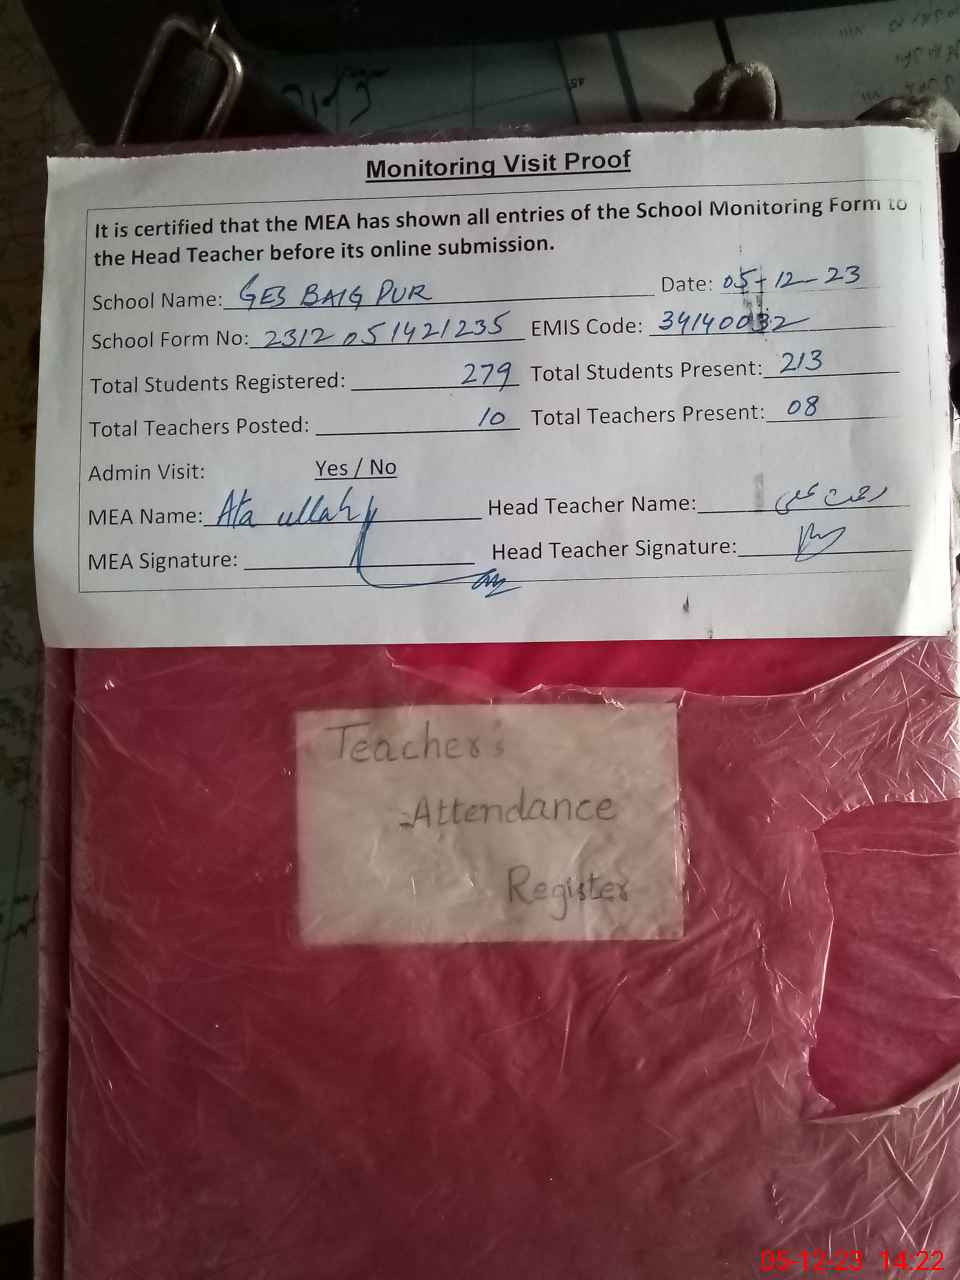 Monitoring Visit Proof
It is certified that the MEA has shown all entries of the School Monitoring Form to
the Head Teacher before its online submission.
School Name: GES BAIG PUR Date: 05-12-23
School Form No: 2312051421235 EMIS Code: 34140032
Total Students Registered: 279 Total Students Present: 213
Total Teachers Posted: 10 Total Teachers Present: 08
Admin Visit: Yes / No
MEA Name: Ata ullah Head Teacher Name:
MEA Signature: Head Teacher Signature:
Teacher's
Attendance
Register
05-12-23 14:22